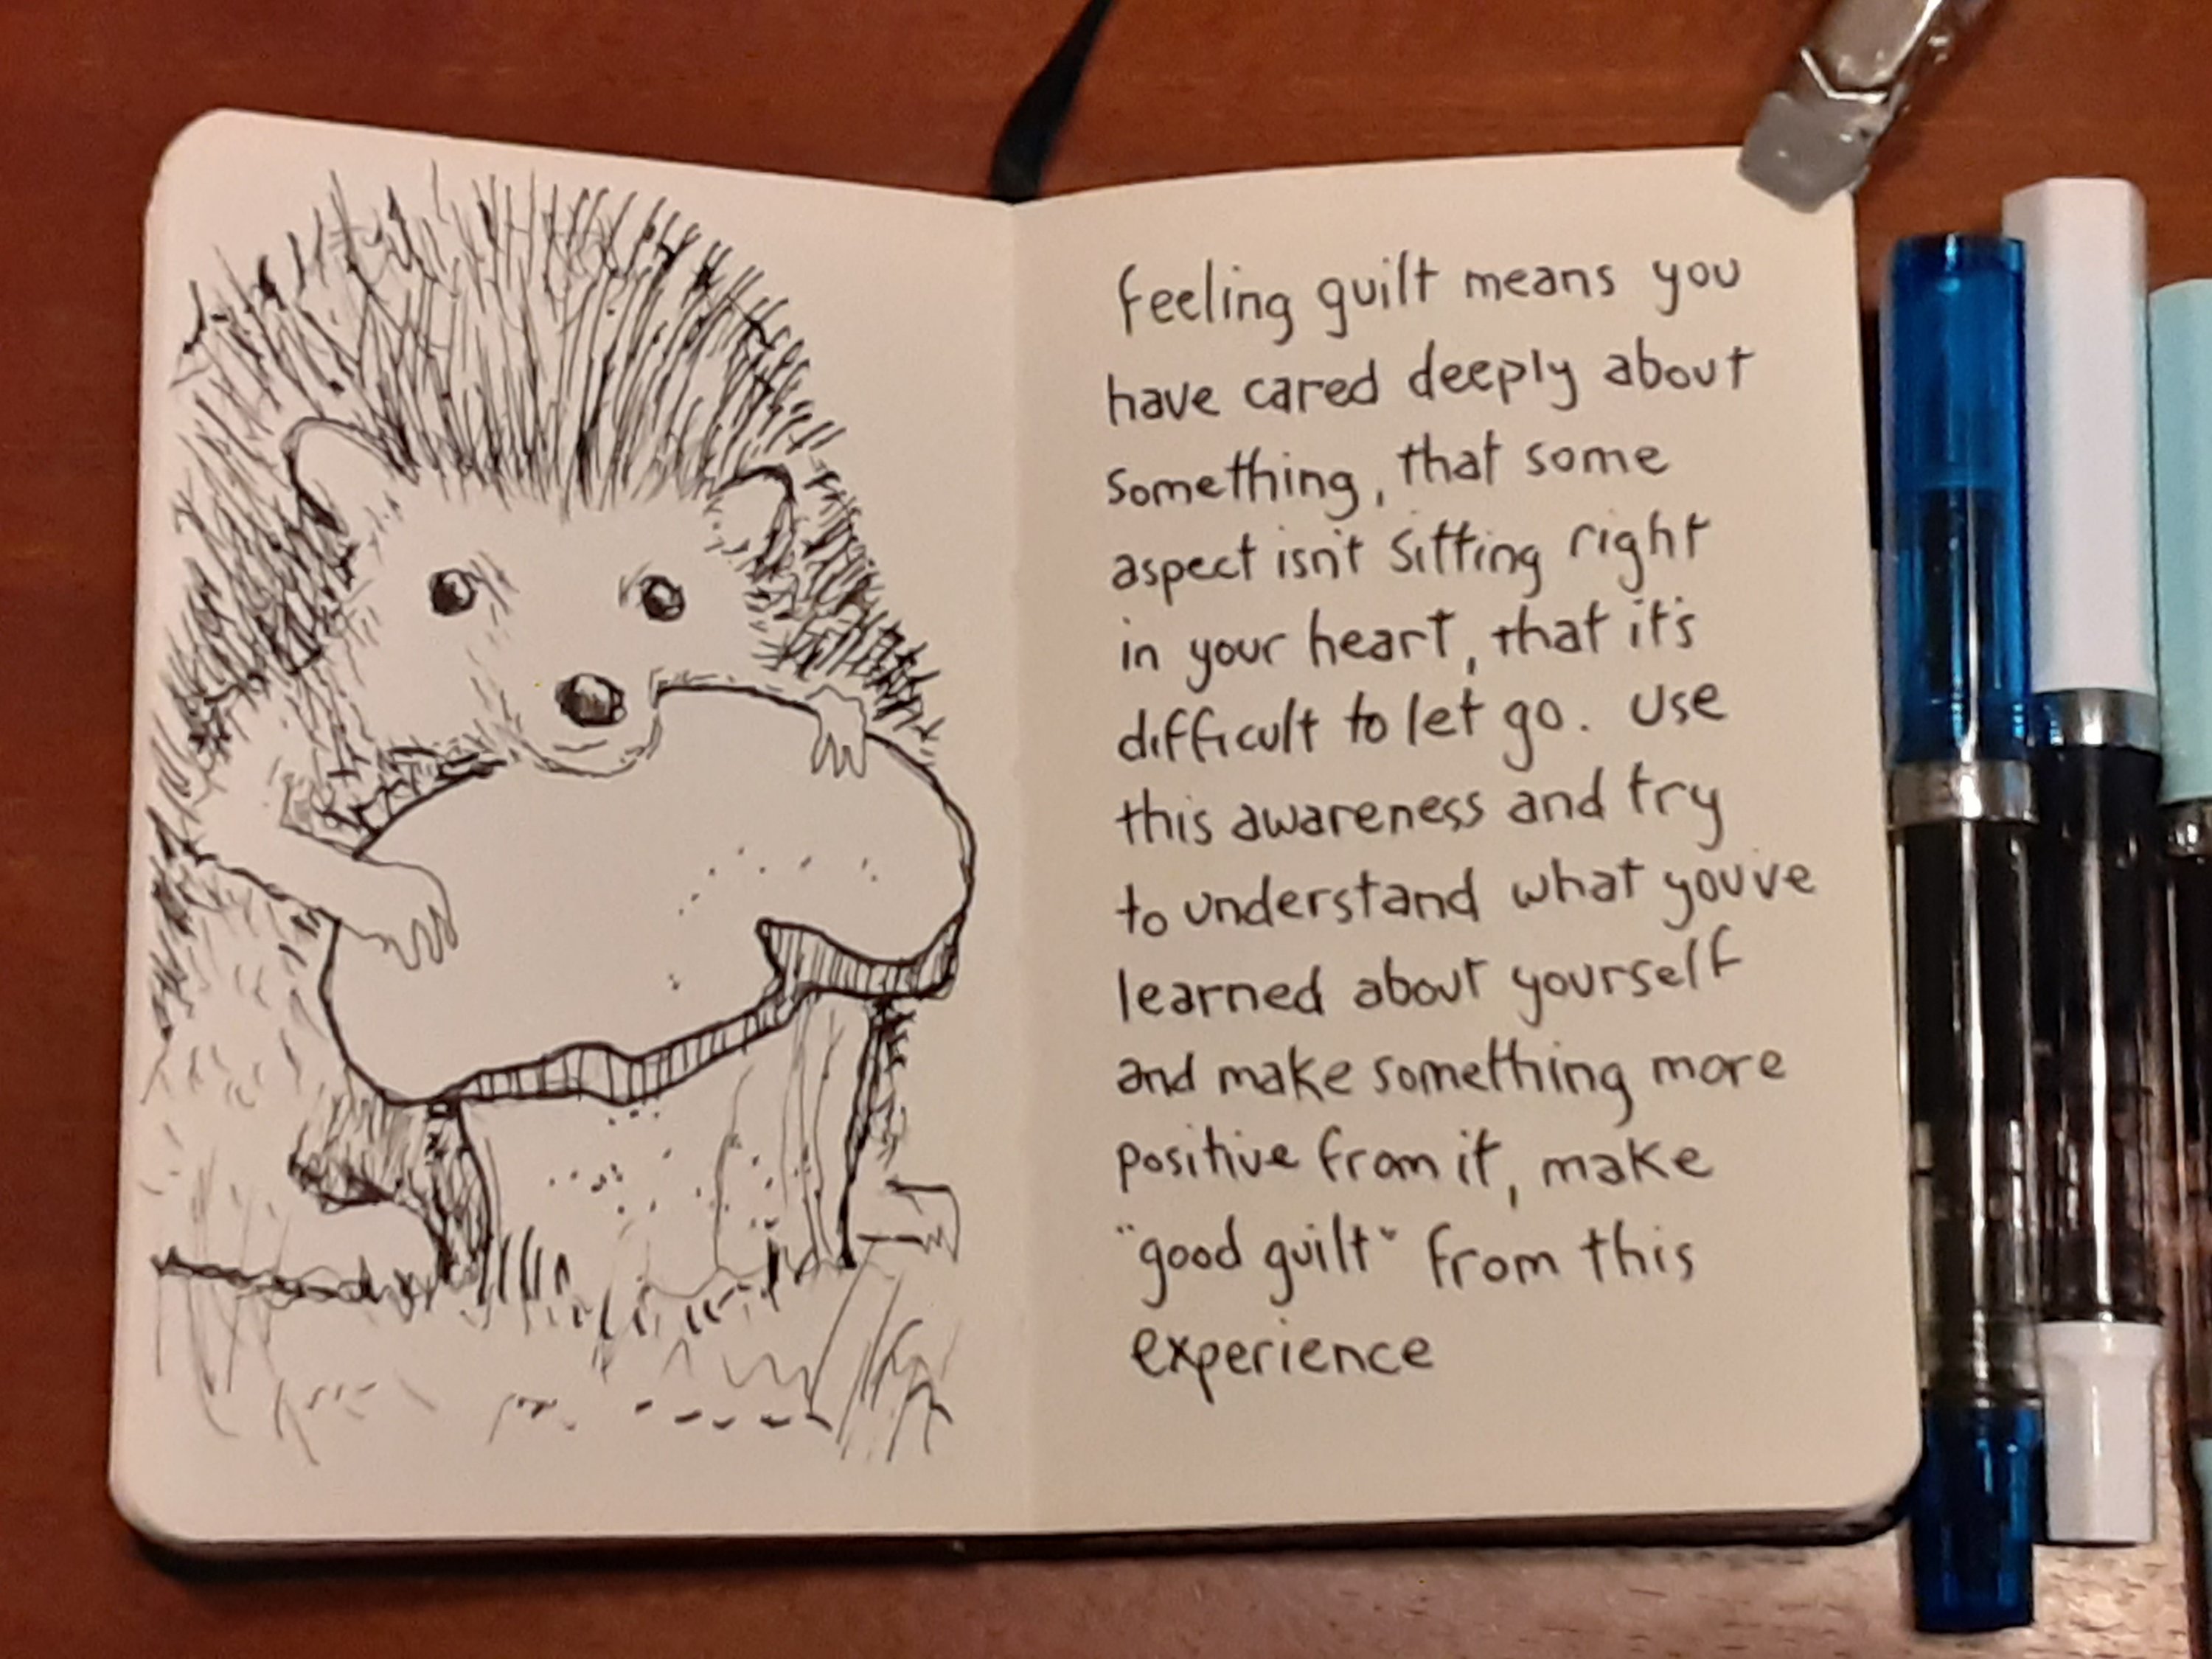 Feeling guilt means you
have cared deeply about
something, that some
aspect isn't sitting right
in your heart, that it's
difficult to let go. Use
this awareness and try
to understand what you've
learned about yourself
and make something more
positive from it, make
"good guilt" from this
experience